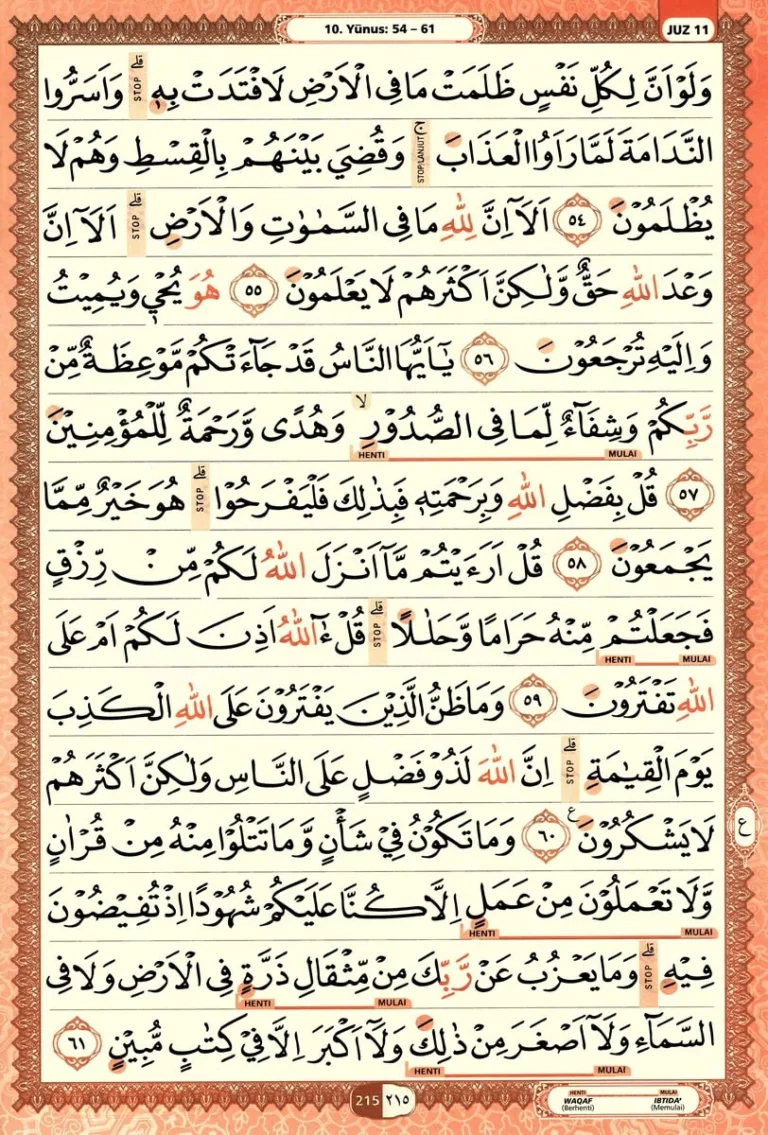 10. Yūnus: 54 – 61
JUZ 11
وَلَوْ اَنَّ لِكُلِّ نَفْسٍ ظَلَمَتْ مَا فِى الْاَرْضِ لَافْتَدَتْ بِهٖ ۗ وَاَسَرُّوا
STOP
النَّدَامَةَ لَمَّا رَاَوُا الْعَذَابَۚ وَقُضِيَ بَيْنَهُمْ بِالْقِسْطِ وَهُمْ لَا
STOP/LANJUT
يُظْلَمُوْنَ ٥٤ اَلَآ اِنَّ لِلّٰهِ مَا فِى السَّمٰوٰتِ وَالْاَرْضِۗ اَلَآ اِنَّ
STOP
وَعْدَ اللّٰهِ حَقٌّ وَّلٰكِنَّ اَكْثَرَهُمْ لَا يَعْلَمُوْنَ ٥٥ هُوَ يُحْيٖ وَيُمِيْتُ
وَاِلَيْهِ تُرْجَعُوْنَ ٥٦ يٰٓاَيُّهَا النَّاسُ قَدْ جَاۤءَتْكُمْ مَّوْعِظَةٌ مِّنْ
رَّبِّكُمْ وَشِفَاۤءٌ لِّمَا فِى الصُّدُوْرِۙ وَهُدًى وَّرَحْمَةٌ لِّلْمُؤْمِنِيْنَ
HENTI MULAI
٥٧ قُلْ بِفَضْلِ اللّٰهِ وَبِرَحْمَتِهٖ فَبِذٰلِكَ فَلْيَفْرَحُوْاۗ هُوَ خَيْرٌ مِّمَّا
STOP
يَجْمَعُوْنَ ٥٨ قُلْ اَرَءَيْتُمْ مَّآ اَنْزَلَ اللّٰهُ لَكُمْ مِّنْ رِّزْقٍ
فَجَعَلْتُمْ مِّنْهُ حَرَامًا وَّحَلٰلًاۗ قُلْ ءٰۤاللّٰهُ اَذِنَ لَكُمْ اَمْ عَلَى
STOP
HENTI MULAI
اللّٰهِ تَفْتَرُوْنَ ٥٩ وَمَا ظَنُّ الَّذِيْنَ يَفْتَرُوْنَ عَلَى اللّٰهِ الْكَذِبَ
يَوْمَ الْقِيٰمَةِۗ اِنَّ اللّٰهَ لَذُوْ فَضْلٍ عَلَى النَّاسِ وَلٰكِنَّ اَكْثَرَهُمْ
STOP
لَا يَشْكُرُوْنَ ࣖ ٦٠ وَمَا تَكُوْنُ فِيْ شَأْنٍ وَّمَا تَتْلُوْا مِنْهُ مِنْ قُرْاٰنٍ
ع
وَّلَا تَعْمَلُوْنَ مِنْ عَمَلٍ اِلَّا كُنَّا عَلَيْكُمْ شُهُوْدًا اِذْ تُفِيْضُوْنَ
HENTI MULAI
فِيْهِۗ وَمَا يَعْزُبُ عَنْ رَّبِّكَ مِنْ مِّثْقَالِ ذَرَّةٍ فِى الْاَرْضِ وَلَا فِى
STOP
HENTI MULAI
السَّمَاۤءِ وَلَآ اَصْغَرَ مِنْ ذٰلِكَ وَلَآ اَكْبَرَ اِلَّا فِيْ كِتٰبٍ مُّبِيْنٍ ٦١
HENTI MULAI
215 ٢١٥
HENTI MULAI
WAQAF IBTIDA'
(Berhenti) (Memulai)